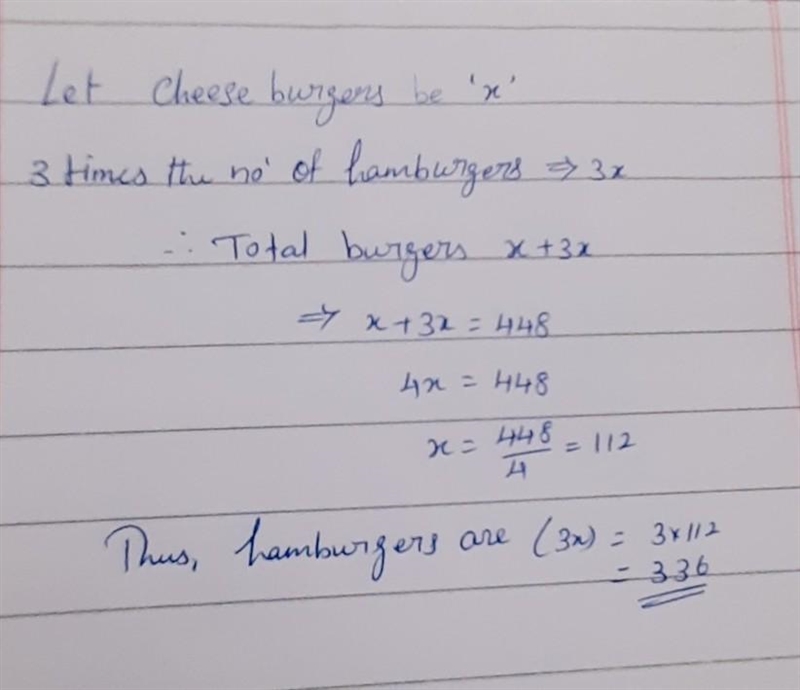 Let Cheese burgers be 'x'
3 times the no of hamburgers ⇒ 3x
∴ Total burgers x + 3x
⇒ x + 3x = 448
4x = 448
x = 448/4 = 112
Thus, hamburgers are (3x) = 3x112
= 336